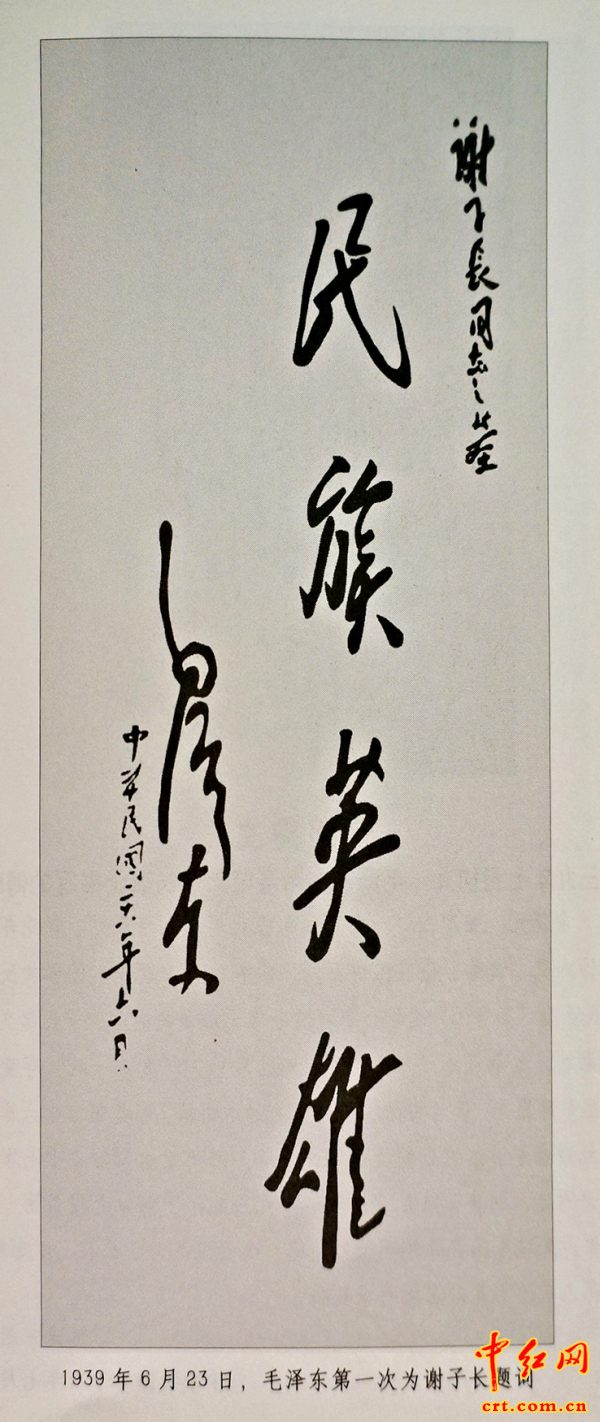 谢子长同志之墓
民族英雄
毛泽东
中华民國二十八年六月
1939年6月23日，毛泽东第一次为谢子长题词
中红网
crt.com.cn